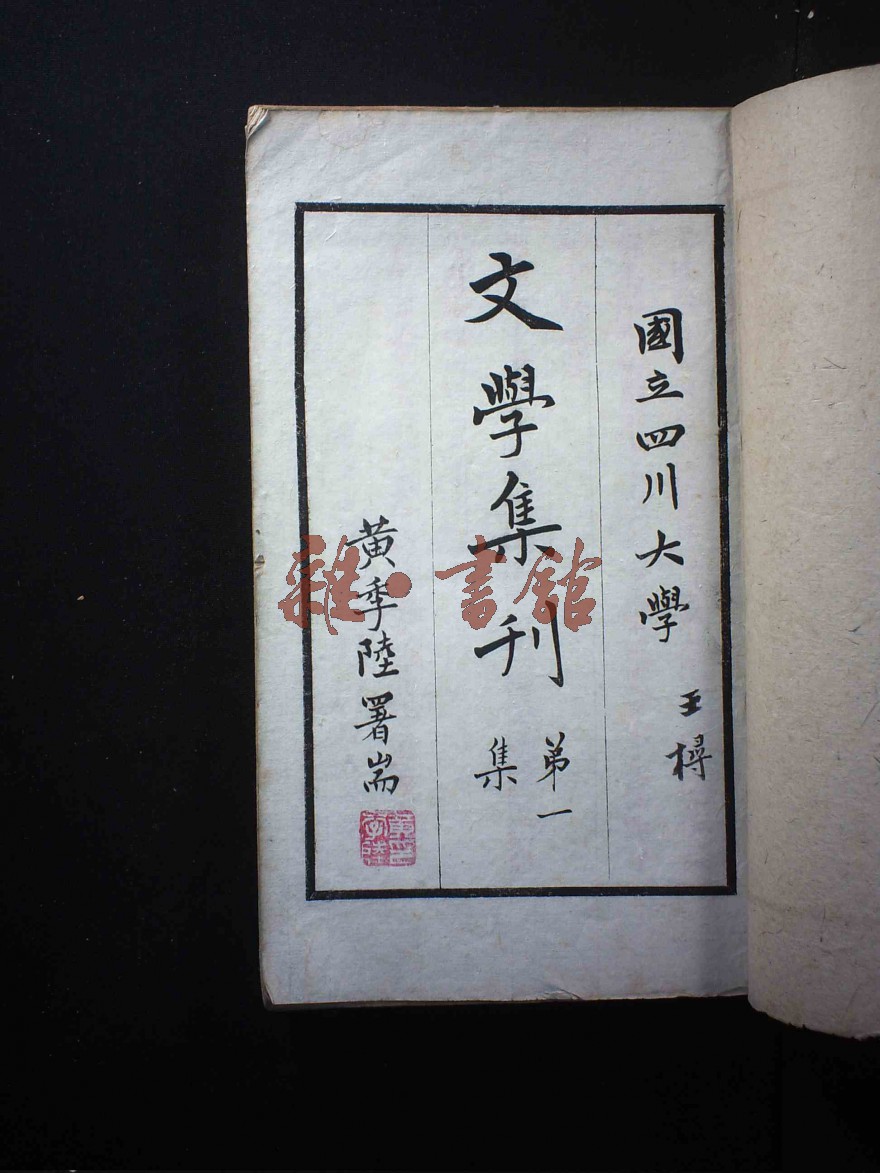 國立四川大學
王樳
文學集刊
第一
集
黃季陸署耑
黃季陸
雜·書館